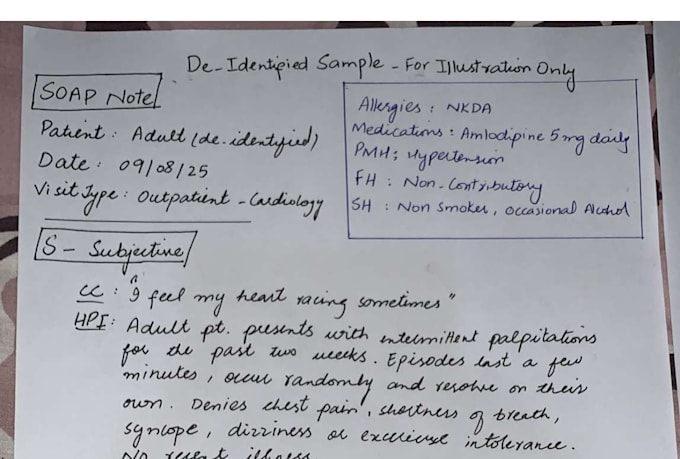 De-Identified Sample - For Illustration Only
SOAP Note
Patient : Adult (de-identified)
Date : 09/08/25
Visit Type : Outpatient - Cardiology
Allergies : NKDA
Medications : Amlodipine 5 mg daily
PMH : Hypertension
FH : Non-Contributory
SH : Non Smoker, Occasional Alcohol
S - Subjective
CC : "I feel my heart racing sometimes"
HPI : Adult pt. presents with intermittent palpitations
for the past two weeks. Episodes last a few
minutes, occur randomly and resolve on their
own. Denies chest pain, shortness of breath,
syncope, dizziness or exercise intolerance.
No recent illness